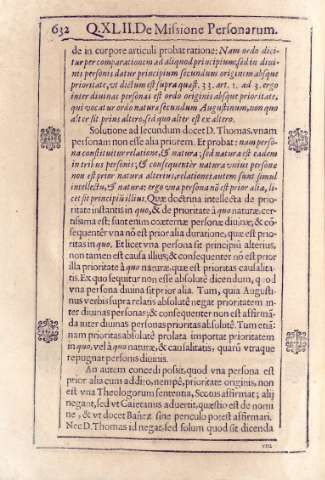 632 Q.XLII. De Missione Personarum.
de in corpore articuli probat ratione: Nam ordo dici
tur per comparationem ad aliquod principium, sed in divi
nis personis datur principium secundum originem absque
prioritate, vt dictum est supra quæst. 33. art. 1. ad 3. ergo
inter diuinas personas est ordo originis absque prioritate,
qui vocatur ordo naturæ secundum Augustinum, non quo
alter sit prius altero, sed quo alter est ex altero.
Solutione ad secundum docet D. Thomas. vnam
personam non esse alia priorem. Et probat: nam perso-
na constituitur relatione, & natura; sed natura est eadem
in tribus personis; & consequenter natura vnius personæ
non est prior natura alterius, relationes autem sunt simul
intellectu, & natura: ergo vna persona nõ est prior alia, li-
cet sit principiũ illius. Quæ doctrina intellecta de prio
ritate instantis in quo, & de prioritate à quo naturæ, cer-
tissima est; sunt enim coæternæ personæ diuinæ, & cõ-
sequentèr vna nõ est prior alia duratione, quæ est prio-
ritas in quo. Et licet vna persona sit principiũ alterius,
non tamen est causa illius; & consequenter nõ est prior
illa prioritate à quo naturæ, quæ est prioritas causalita-
tis. Ex quo sequitur non esse absolutè dicendum, quod
vna persona diuina sit prior alia. Tum, quia Augusti-
nus verbis supra relatis absolutè negat prioritatem in-
ter diuinas personas; & consequenter non est affirmã-
da inter diuinas personas prioritas absolutè. Tum etiã:
nam prioritas absolutè prolata importat prioritatem
in quo, vel à quo naturæ, & causalitatis, quarũ vtraque
repugnat personis diuinis.
An autem concedi possit, quod vna persona est
prior alia cum addito, nempè, prioritate originis, non
est vna Theologorum sententia, Scotus affirmat; alij
negant, sed vt Caietanus aduertit, quæstio est de nomi
ne, & vt docet Bañez sine periculo potest affirmari.
Nec D. Thomas id negat, sed solum quod sit dicenda